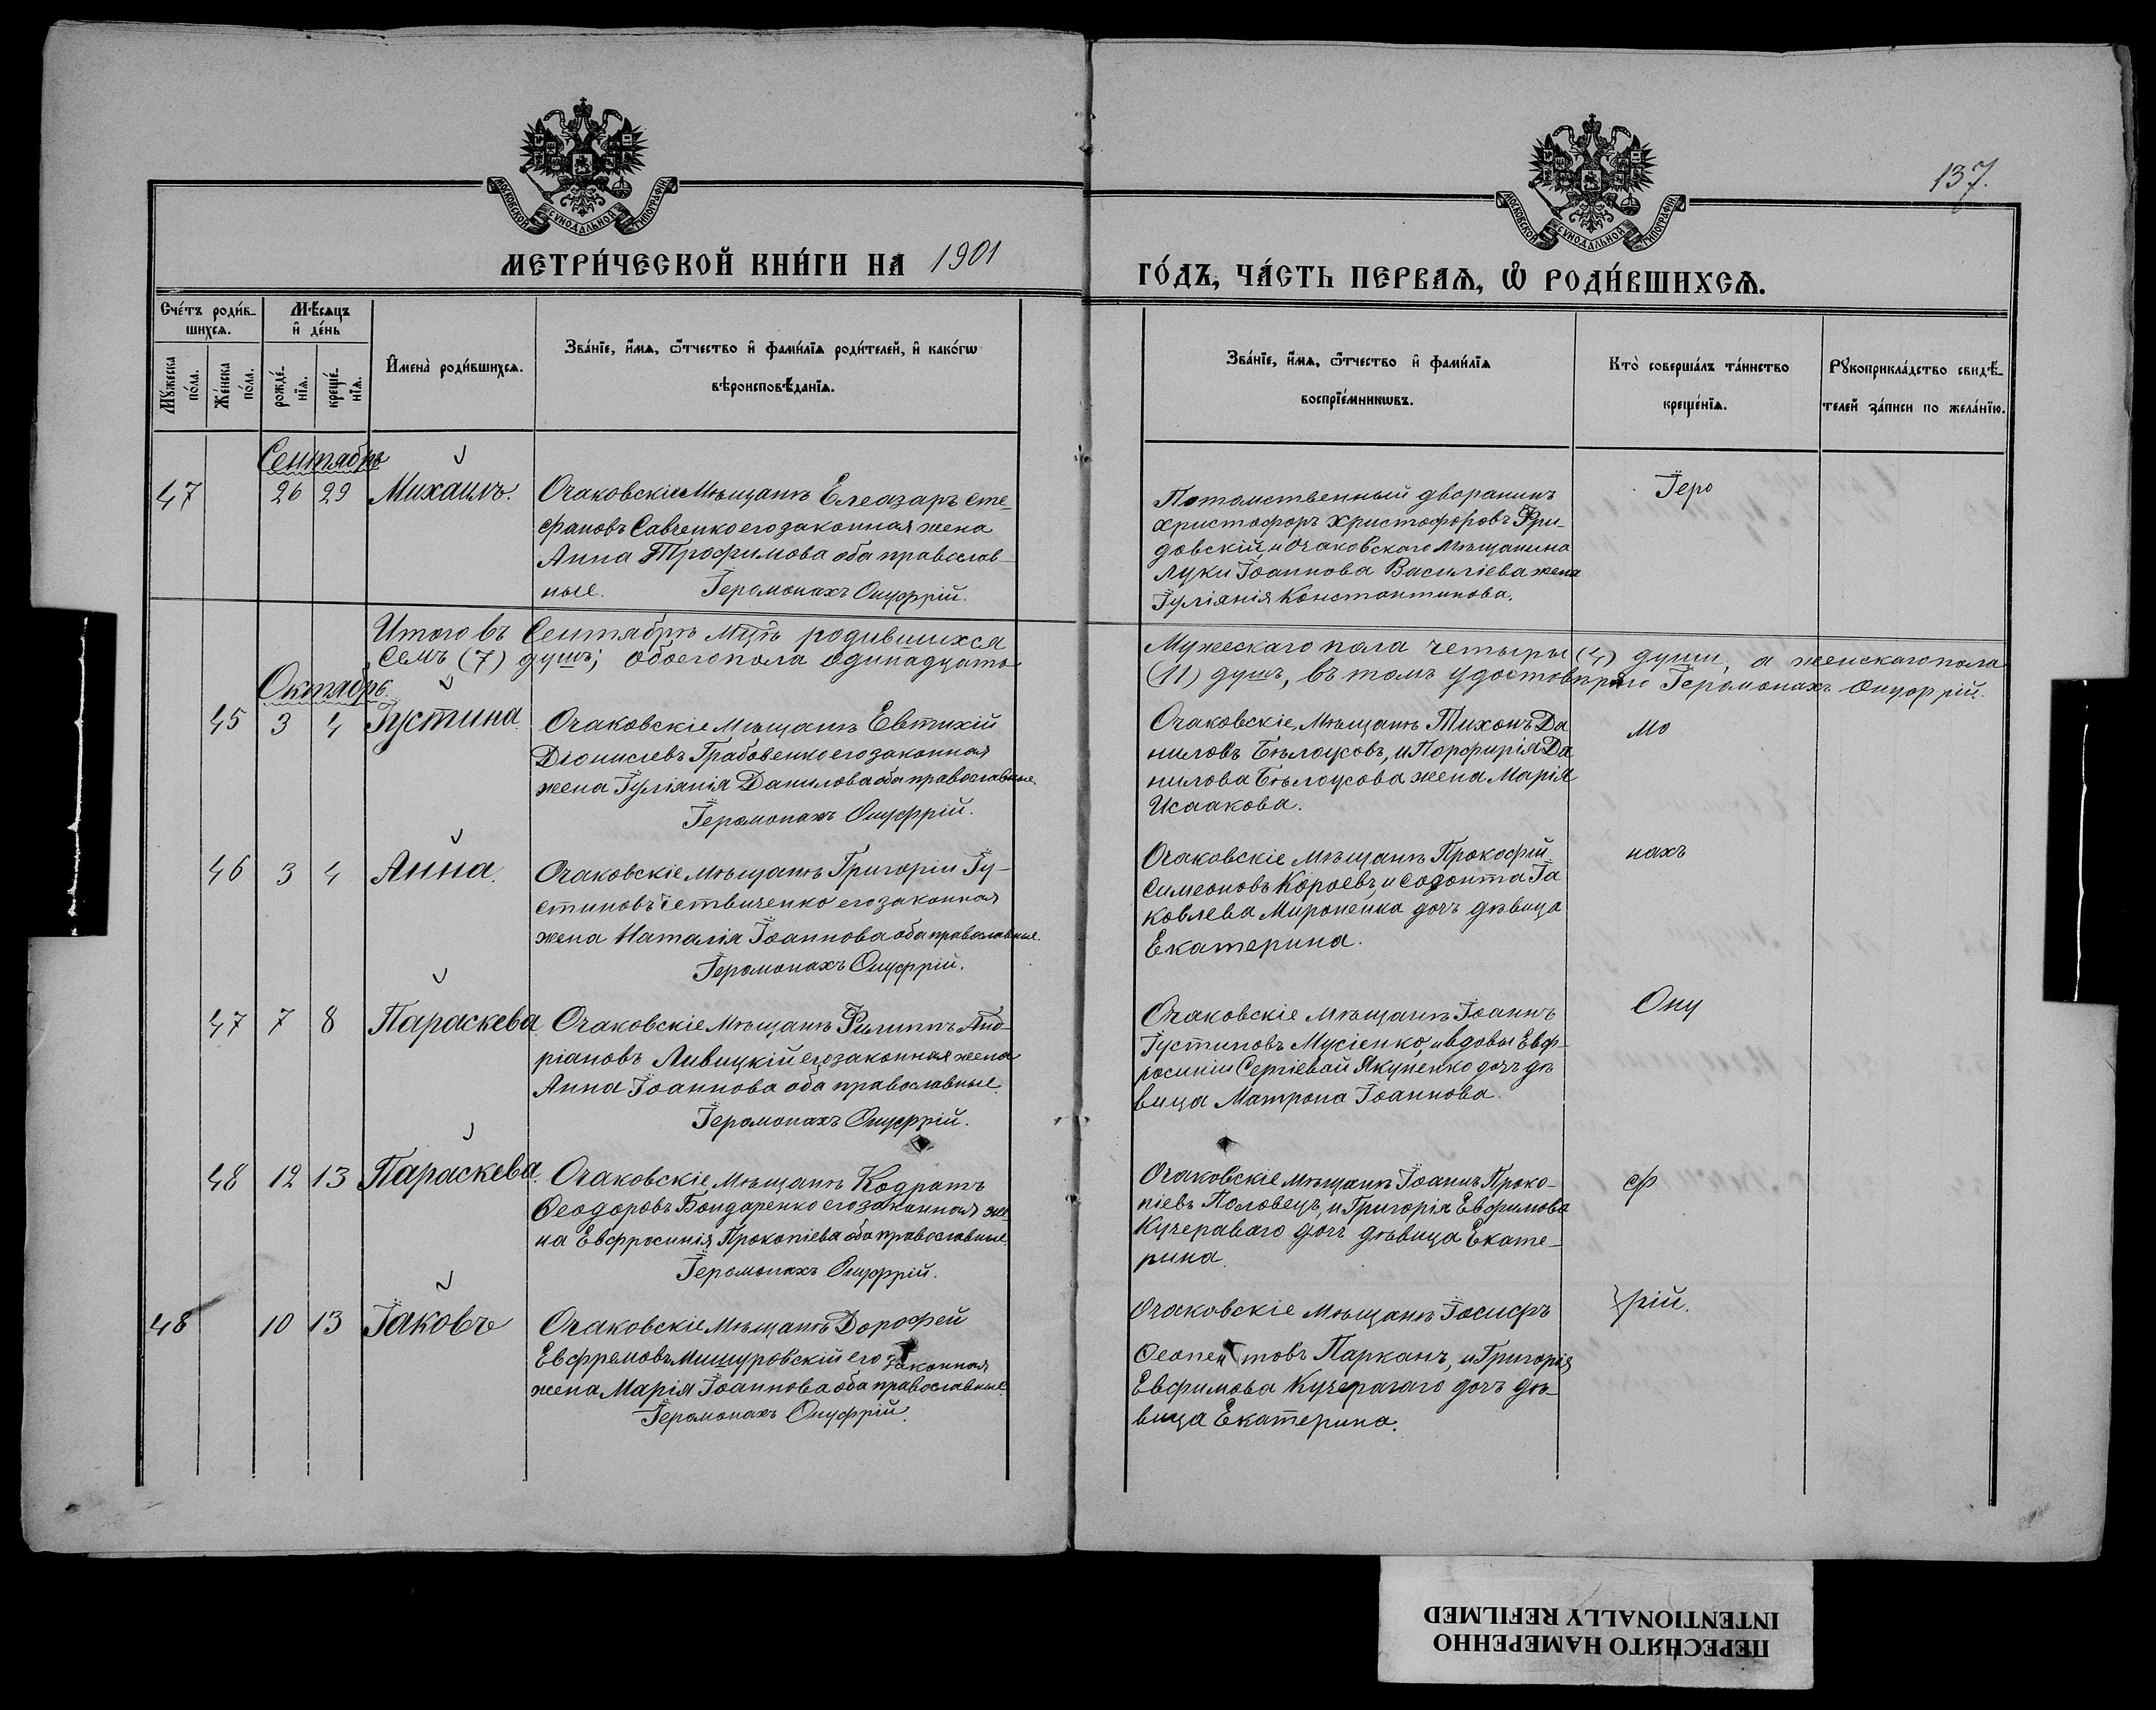 137.
МОСКОВСКОЙ СѴНОДАЛЬНОЙ ТИПОГРАФІИ
МОСКОВСКОЙ СѴНОДАЛЬНОЙ ТИПОГРАФІИ
МЕТРИ́ЧЕСКОЙ КНИ́ГИ НА 1901
ГО́ДЪ, ЧА́СТЬ ПЕРВАѦ, Ѽ РОДИ́ВШИХСѦ.
Сче́тъ роди́в-
шихсѧ.
Мѣ́сѧцъ
и҆ де́нь
Мꙋ́жеска
по́ла.
Же́нска
по́ла.
рожде́-
нїѧ.
креще́-
нїѧ.
И҆мена̀ роди́вшихсѧ.
Зва́нїе, и҆́мѧ, ѻ҆́тчество и҆ фами́лїѧ роди́телей, и҆ како́гѡ
вѣроисповѣ́данїѧ.
Зва́нїе, и҆́мѧ, ѻ҆́тчество и҆ фами́лїѧ
воспрїе́мникѡвъ.
Кто̀ соверша́лъ та́инство
креще́нїѧ.
Рꙋкоприкла́дство свидѣ́-
телей за́писи по жела́нїю.
Сентябрь
47 26 29 Михаилъ.
Очаковскіе Мѣщанъ Елеазаръ Сте-
фановъ Савченко его законная жена
Анна Трофимова оба православ-
ные. Іеромонахъ Онуфрій.
Потомственный дворанинъ
Христофоръ Христофоровъ Фри-
довскій, и Очаковскаго Мѣщанина
Луки Іоаннова Василіева жена
Іуліанія Константинова.
Іеро
Итого въ Сентябрѣ мцѣ родившихся
Мужескаго пола четыри (4) души, а женскаго пола
семъ (7) душъ; обоего пола одинадцать
(11) душъ, въ томъ удостовѣряю Іеромонахъ Онуфрій.
Октябрь.
45 3 4 Іустина
Очаковскіе Мѣщанъ Евтихій
Діонисіевъ Грабовенко его законная
жена Іуліанія Данилова оба православные.
Іеромонахъ Онуфрій.
Очаковскіе Мѣщанъ Тихонъ Да
ниловъ Бѣлоусовъ, и Порфирія Да
нилова Бѣлоусова жена Марія
Исаакова.
мо
46 3 4 Анна.
Очаковскіе Мѣщанъ Григоріи Іу-
стиновъ его законная
жена Наталія Іоаннова оба православные.
Іеромонахъ Онуфрій.
Очаковскіе Мѣщанъ Прокофій
Симеоновъ Короевъ, и Іа
ковлева Миронейка дочъ дѣвица
Екатерина.
нахъ
47 7 8 Параскева
Очаковскіе Мѣщанъ Филиппъ Анд-
ріановъ Ливицкій его законная жена
Анна Іоаннова оба православные.
Іеромонахъ Онуфрій.
Очаковскіе Мѣщанъ Іоаннъ
Іустиновъ Мусіенко, и вдовы Евф-
росиніи Сергіевай Якуненко дочъ дѣ
вица Матрона Іоаннова.
Ону
48 12 13 Параскева.
Очаковскіе Мѣщанъ Кодратъ
Ѳеодоровъ Бондаренко его законная же-
на Евфросинія Прокопіева оба православные.
Іеромонахъ Онуфрій.
Очаковскіе Мѣщанъ Іоаннъ Проко-
піевъ Половецъ, и Григорія Евфимова
Кучераваго дочъ дѣвица Екате-
рина.
ф
48 10 13 Іаковъ
Очаковскіе Мѣщанъ Дорофей
Евфремовъ Мишуровскій его законная
жена Марія Іоаннова оба православные.
Іеромонахъ Онуфрій.
Очаковскіе Мѣщанъ Іосифъ
Парканъ, и Григорія
Евфимова Кучерагаго дочъ дѣ-
вица Екатерина.
рій.
ПЕРЕСНЯТО НАМЕРЕННО
INTENTIONALLY REFILMED